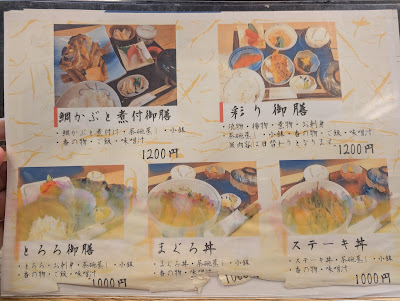 鯛かぶと煮付御膳
・鯛かぶと煮付・茶碗蒸し・小鉢
・香の物・ご飯・味噌汁
1200円
彩り御膳
・焼物・揚物・煮物・お刺身
・茶碗蒸し・小鉢・香の物・ご飯・味噌汁
※内容は日替わりとなります
1200円
とろろ御膳
・とろろ・お刺身・茶碗蒸し・小鉢
・香の物・ご飯・味噌汁
1000円
まぐろ丼
・まぐろ丼・茶碗蒸し・小鉢
・香の物・味噌汁
1000円
ステーキ丼
・ステーキ丼・茶碗蒸し・小鉢
・香の物・味噌汁
1000円